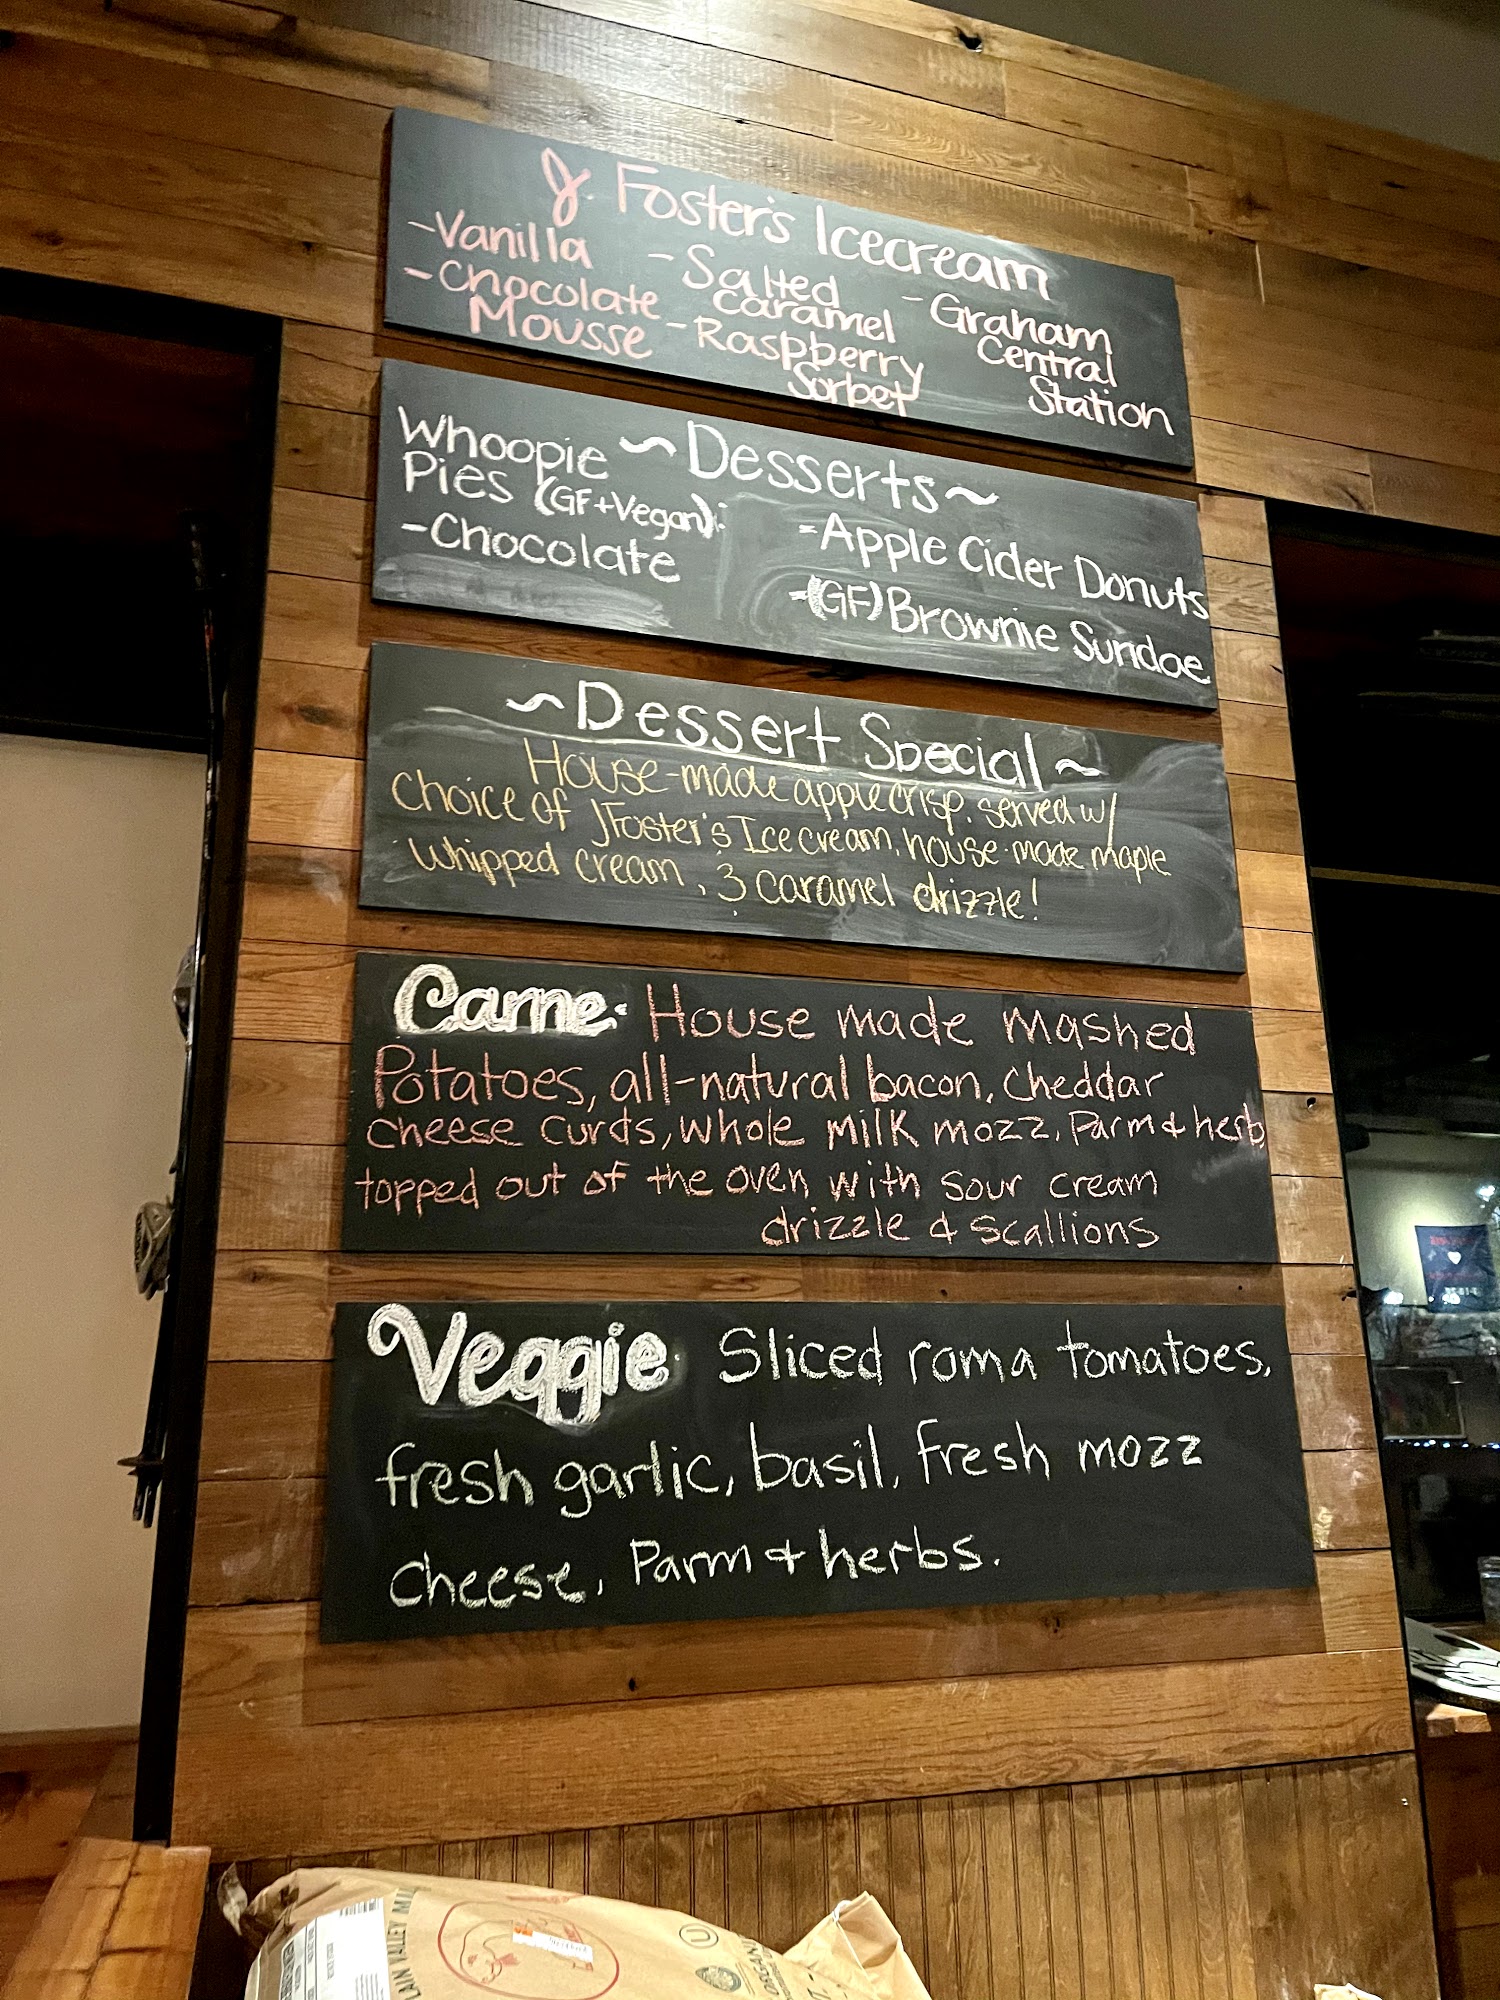 J Foster's Icecream
-Vanilla
-Chocolate
Mousse
-Salted
Caramel
-Raspberry
Sorbet
-Graham
Central
Station
~Desserts~
Whoopie
Pies (GF+Vegan):
-Chocolate
-Apple Cider Donuts
-(GF) Brownie Sundae
~Dessert Special~
House-made apple crisp. served w/
choice of JFoster's Ice cream, house-made maple
whipped cream, & caramel drizzle!
Carne: House made mashed
Potatoes, all-natural bacon, cheddar
cheese curds, whole milk mozz, Parm & herb
topped out of the oven with sour cream
drizzle & scallions
Veggie: Sliced roma tomatoes,
fresh garlic, basil, fresh mozz
cheese, Parm & herbs.